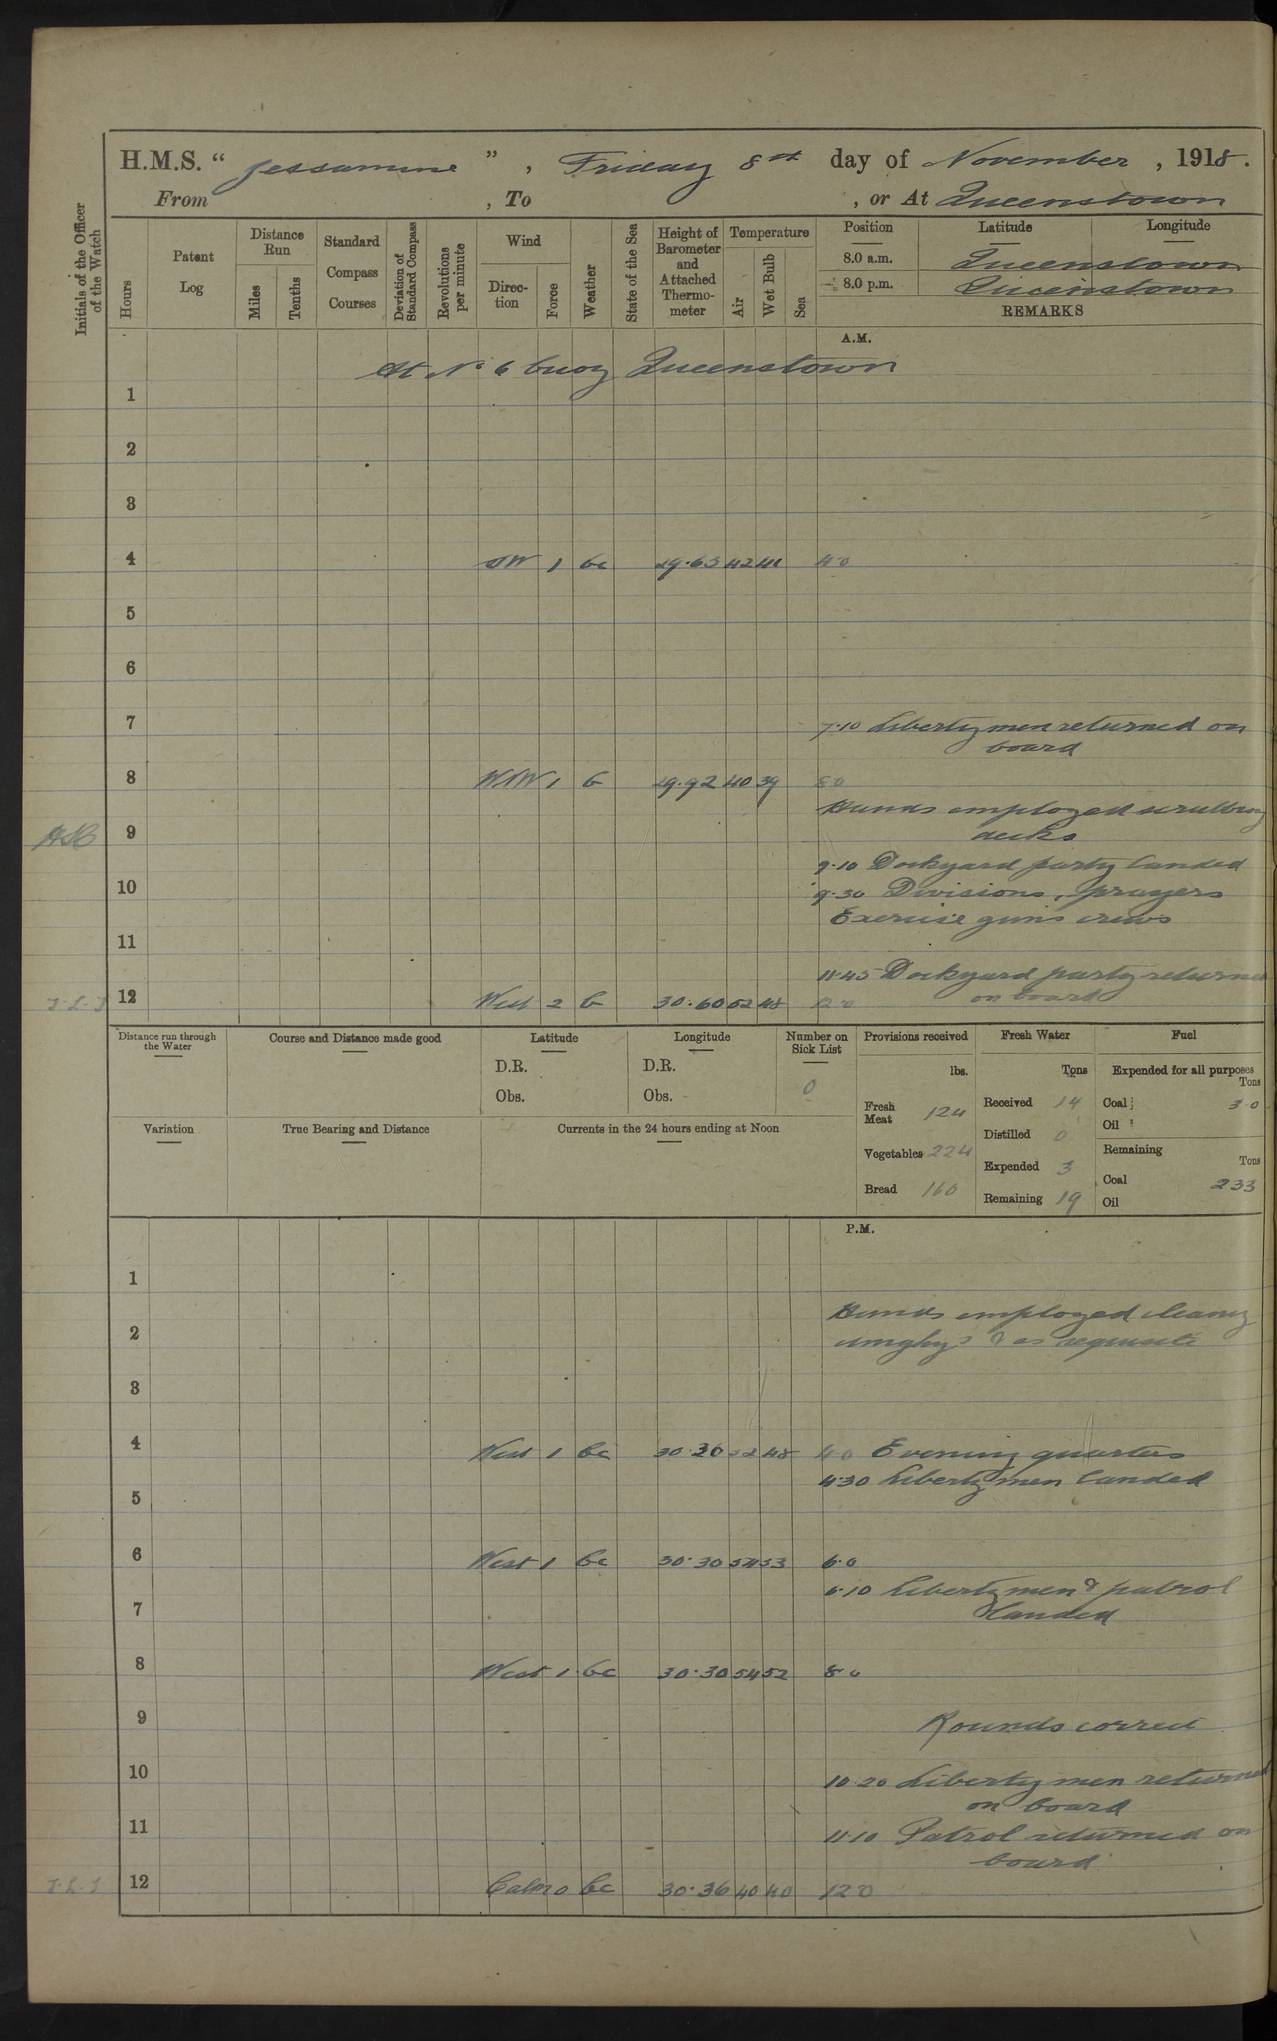 H.M.S. " Jessamine ", Friday 8th day of November, 1918.
From , To , or At Queenstown
Initials of the Officer of the Watch
Hours
Patent Log
Distance Run
Miles
Tenths
Standard Compass Courses
Deviation of Standard Compass
Revolutions per minute
Wind
Direction
Force
Weather
State of the Sea
Height of Barometer and Attached Thermometer
Temperature
Air
Wet Bulb
Sea
Position Latitude Longitude
8.0 a.m. Queenstown
8.0 p.m. Queenstown
REMARKS
A.M.
At No 6 buoy Queenstown
1
2
3
4 SW 1 bc 29.63 42 41 4.0
5
6
7
7.10 Liberty men returned on
board
8 WSW 1 b 29.92 40 39 8.0
Hands employed scrubbing
9 decks
9.10 Dockyard party landed
10 9.30 Divisions, prayers
Exercise guns crews
11
11.45 Dockyard party returned
12 West 2 b 30.60 52 48 12.0 on board
Distance run through the Water
Course and Distance made good
Latitude
D.R.
Obs.
Longitude
D.R.
Obs.
Number on Sick List
0
Provisions received
lbs.
Fresh Meat 124
Vegetables 224
Bread 160
Fresh Water
Tons
Received 14
Distilled 0
Expended 3
Remaining 19
Fuel
Expended for all purposes
Tons
Coal 3.0
Oil
Remaining
Tons
Coal 233
Oil
Variation
True Bearing and Distance
Currents in the 24 hours ending at Noon
P.M.
1
Hands employed cleaning
2 & as requisite
3
4 West 1 bc 30.30 52 48 4.0 Evening quarters
4.30 Liberty men landed
5
6 West 1 bc 30.30 54 53 6.0
6.10 Liberty men & patrol
7 landed
8 West 1 bc 30.30 54 52 8.0
9 Rounds correct
10 10.20 Liberty men returned
on board
11 11.10 Patrol returned on
board
12 Calm 0 bc 30.36 40 40 12.0